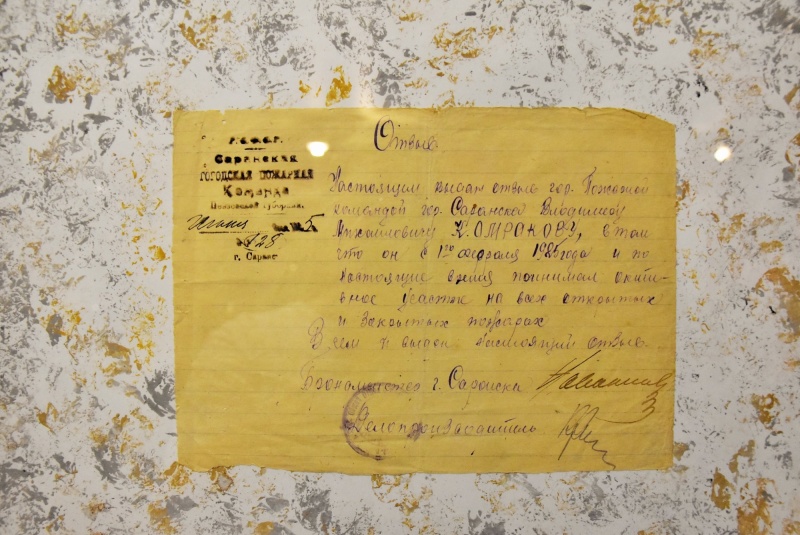 Р.С.Ф.С.Р.
Саранская
ГОРОДСКАЯ ПОЖАРНАЯ
Команда
Пензенской губернии.
5
№ 128
г. Саранс
Отзыв
Настоящим выдан отзыв гор. Пожарной
командой гор. Саранска Владимиру
Михайловичу КОМРАКОВУ, в том
что он с 1го февраля 1925 года и по
настоящие время принимал актив-
ное участие на всех открытых
и закрытых пожарах
В чем и выдан настоящий отзыв.
Брандмейстер г. Саранска
Делопроизводитель